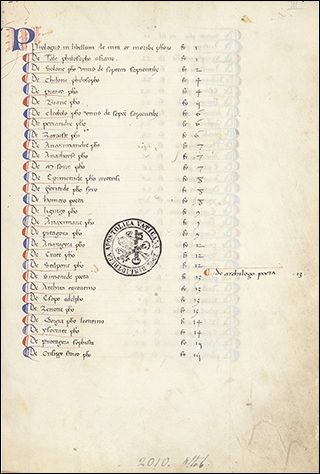 Prologus in libellum de vita et moribus phorum fo 1
De Tale philosopho asiano fo 1
De Solone pho unus de septem sapientibus fo 2
De Chilone philosopho fo 4
De Pitaco pho fo 4
De Biante pho fo 4
De Cleobolo pho unus de septem sapientibus fo 6
De periandre pho fo 6
De Zoroaste pho fo 6
De Anaximandre pho fo 7
De Anacharse pho fo 7
De Misone pho fo 7
De Epimenide pho cretensi fo 8
De phericide pho siro fo 8
De homero poeta fo 8
De ligurgo pho fo 9
De Anaximene pho fo 9
De pitagora pho fo 9
De Anaxagora pho fo 12
De Crate pho fo 12
De Stilpone pho fo 12
De Simonide poeta fo 13
De archilogo poeta 13
De Archita tarentino fo 13
De Esopo adelpho fo 13
De Zenone pho fo 13
De Gorgia pho leontino fo 14
De Ysocrate pho fo 14
De protagora sophista fo 14
De Crisippo pho fo 14
BIBLIOTHECA APOSTOLICA VATICANA
2010